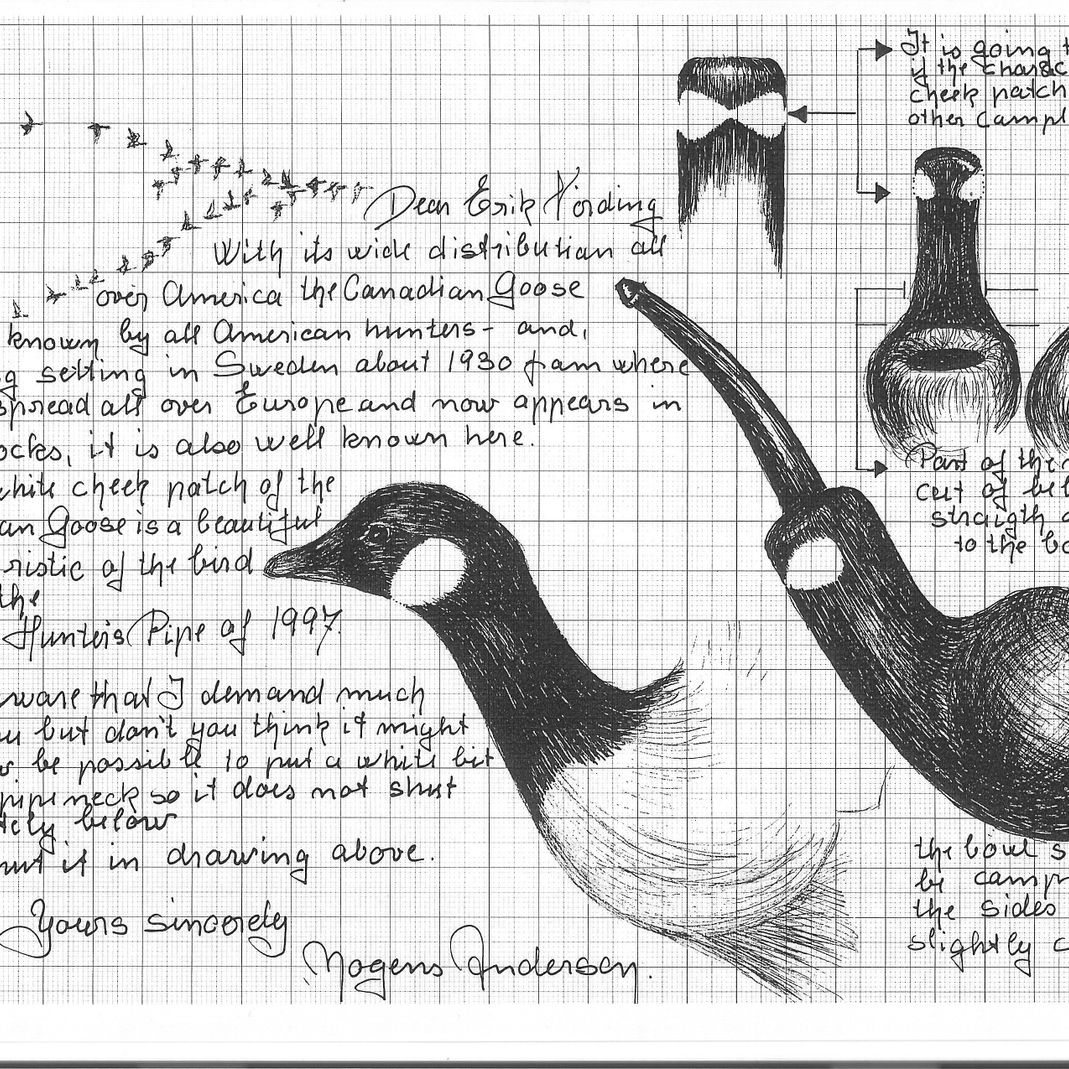 Dear Erik Nörding
With its wide distribution all
over America the Canadian Goose
known by all American hunters - and,
g setting in Sweden about 1930 from where
spread all over Europe and now appears in
ocks, it is also well known here.
white cheek patch of the
an Goose is a beautiful
ristic of the bird
the
Hunters Pipe of 1997.
ware that I demand much
u but don't you think it might
be possible to put a white bit
pipe neck so it does not shut
tely below
out it in drawing above.
Yours sincerely
Mogens Andersen.
It is going t
if the charac
cheek patch
other campl
Part of the
cut of bel
straigth a
to the bo
the bowl s
be campr
the sides
slightly c